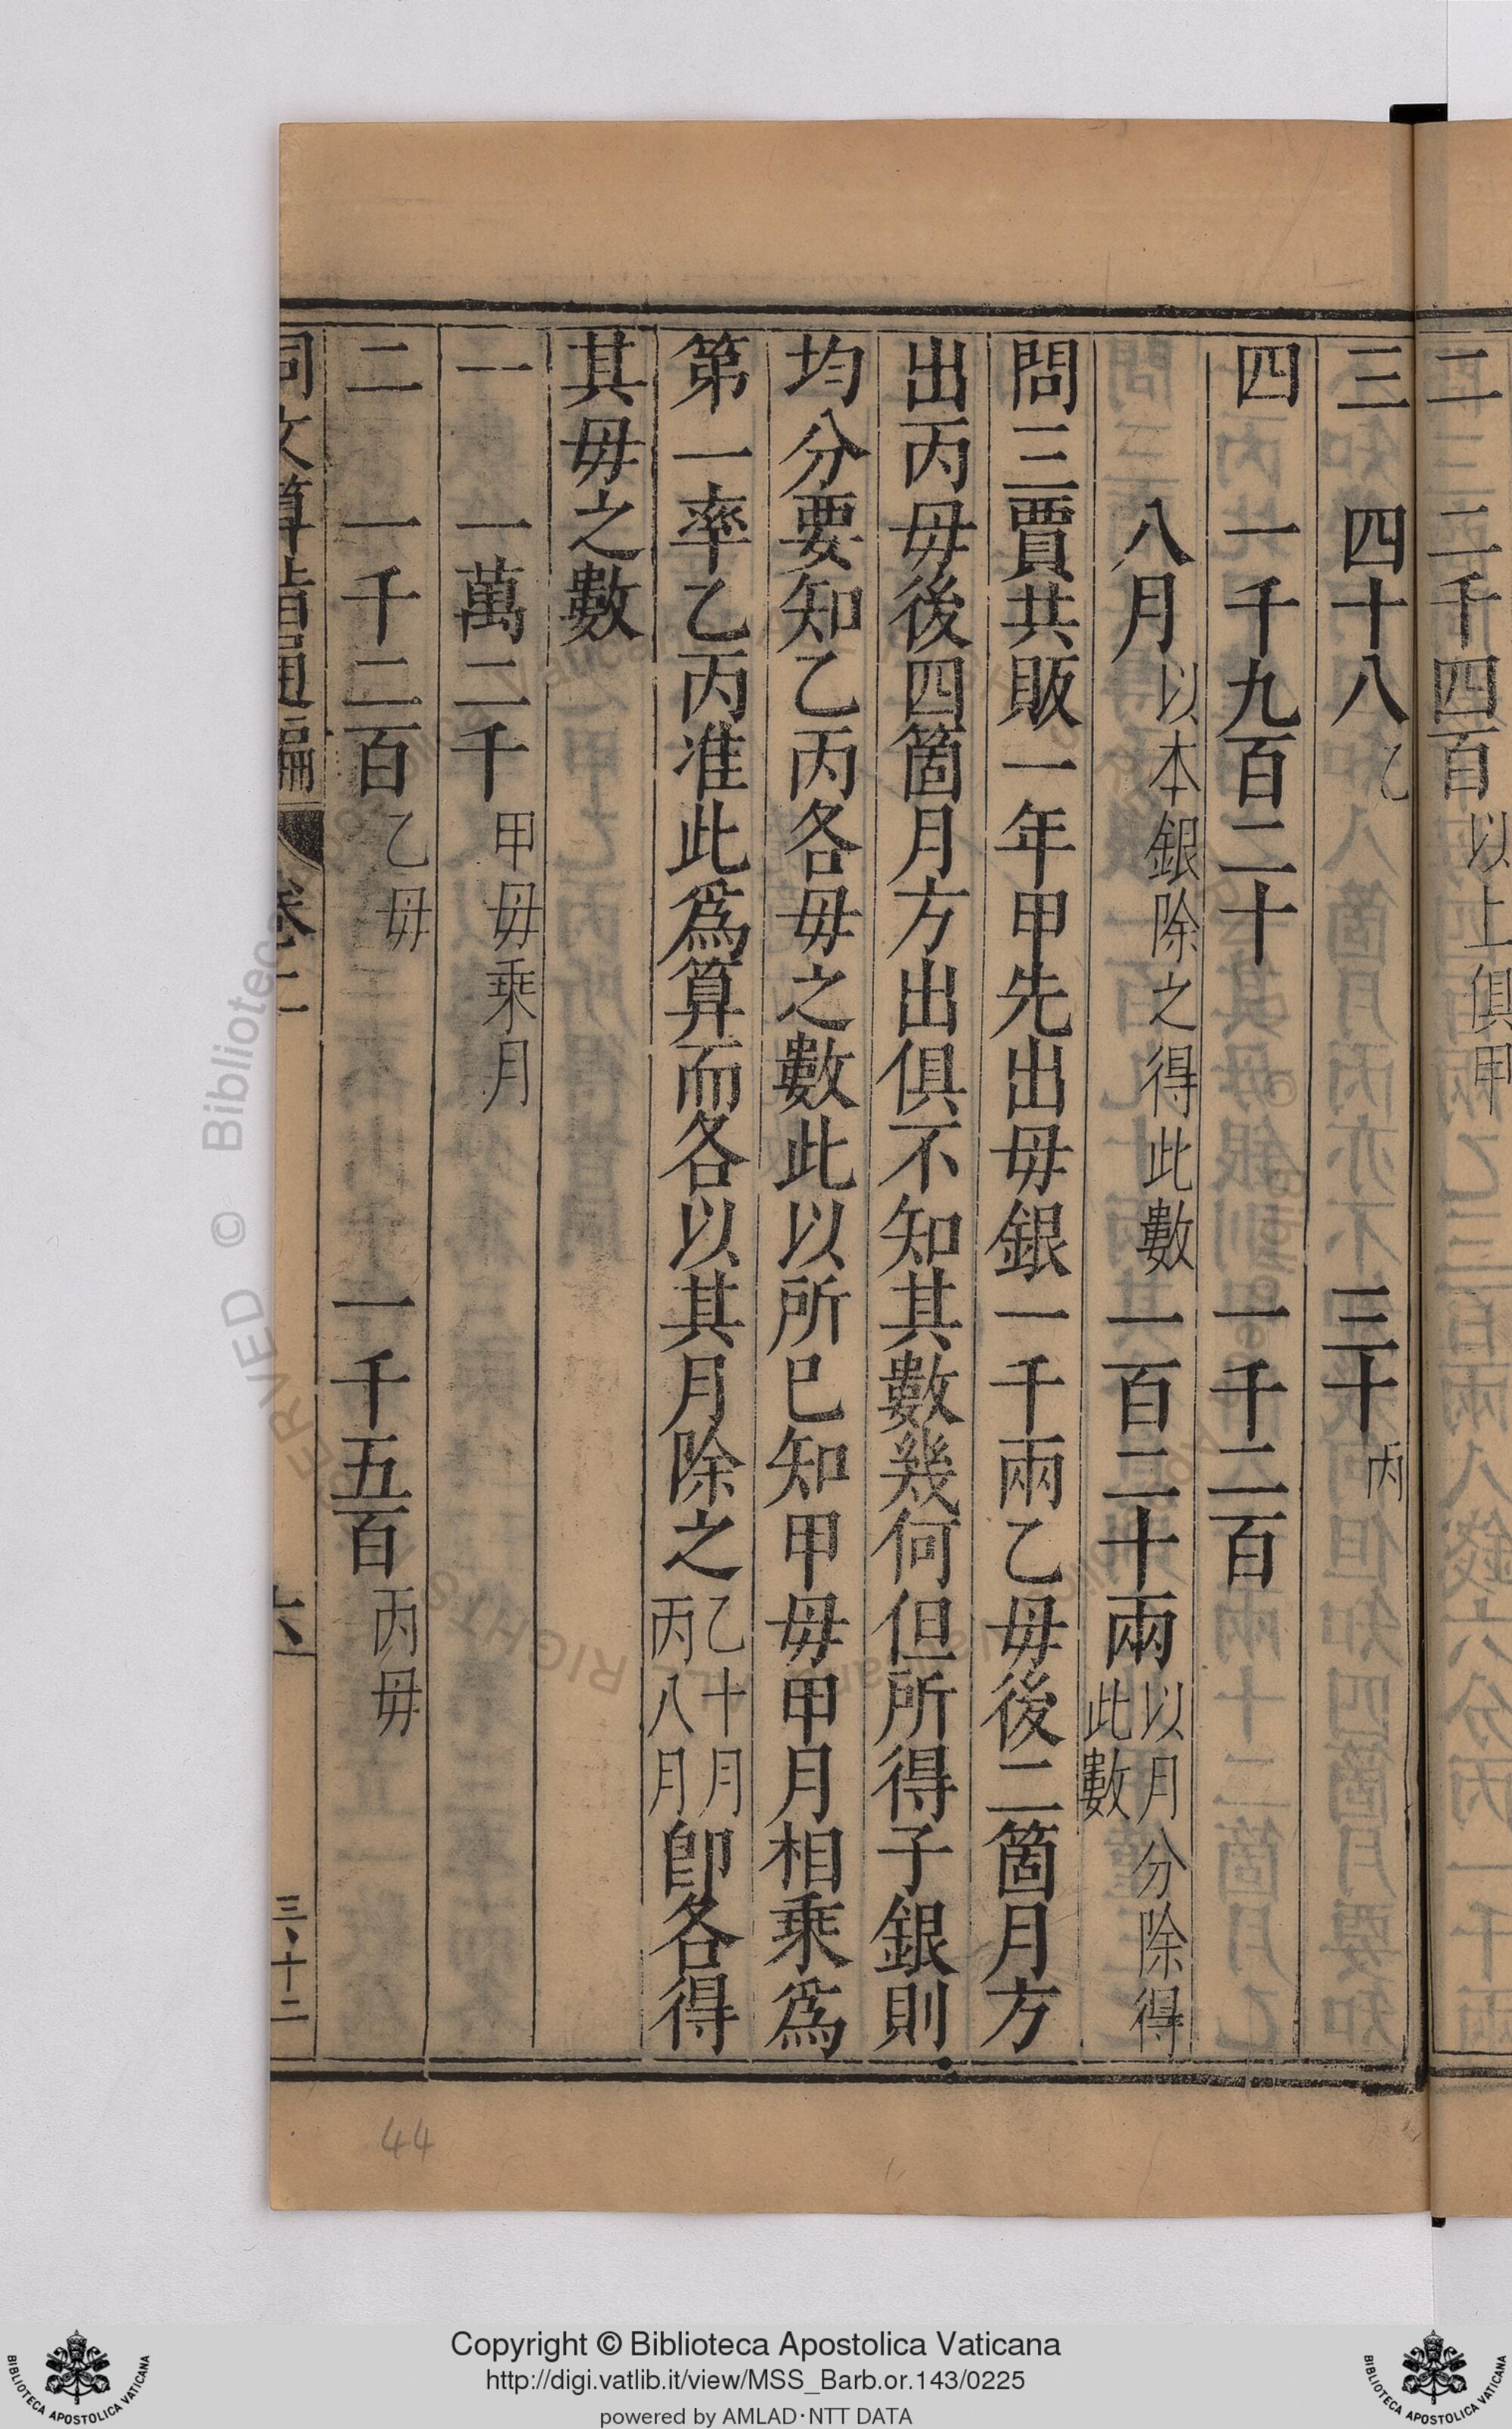 二　二千四百以上俱甲
三　四十八乙　三十丙
四　一千九百二十　一千二百
八月以本銀除之得此數　一百二十兩以月分除得此數
問三賈共販一年甲先出毋銀一千兩乙毋後二箇月方
出丙毋後四箇月方出俱不知其數幾何但所得子銀則
均分要知乙丙各毋之數此以所巳知甲毋甲月相乘爲
第一率乙丙准此爲算而各以其月除之乙十月丙八月卽各得
其毋之數
一　一萬二千甲毋乘月
二　一千二百乙毋　一千五百丙毋
同文算指通編　卷二　六　三十二
44
Copyright © Biblioteca Apostolica Vaticana
http://digi.vatlib.it/view/MSS_Barb.or.143/0225
powered by AMLAD·NTT DATA
BIBLIOTECA APOSTOLICA VATICANA
BIBLIOTECA APOSTOLICA VATICANA